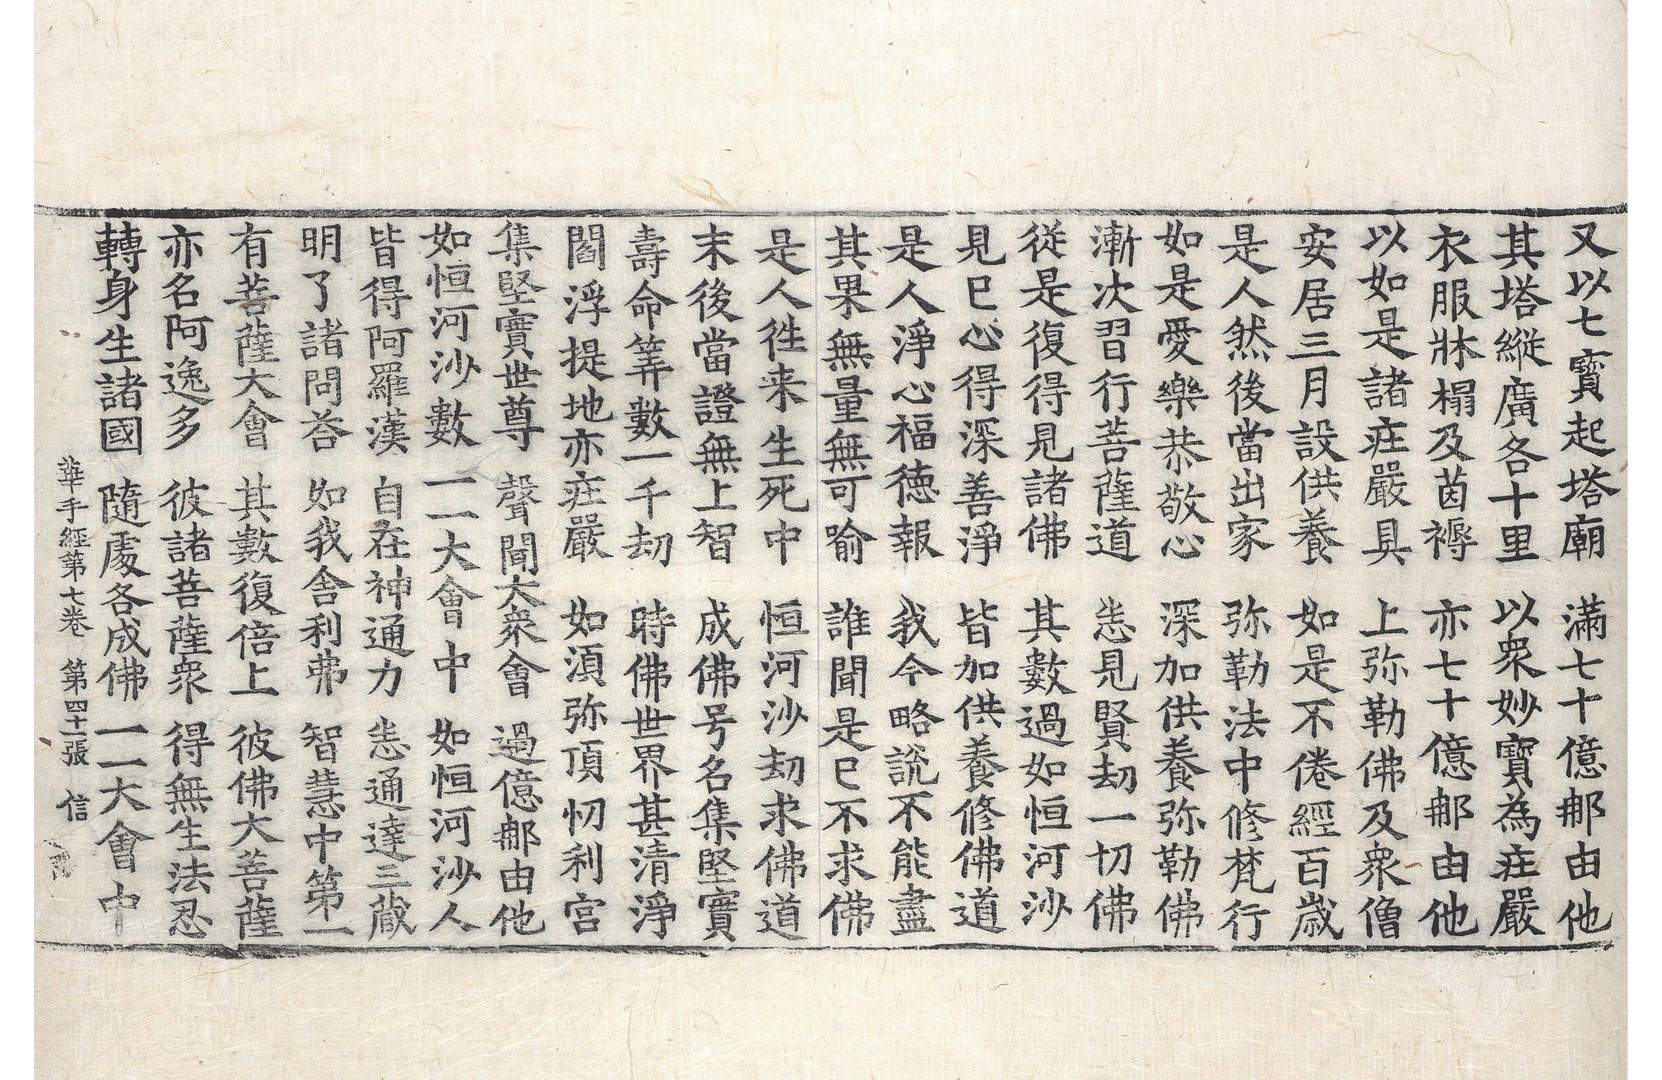 又以七寶起塔廟　滿七十億那由他
其塔縱廣各十里　以衆妙寶為庄嚴
衣服牀榻及茵褥　亦七十億那由他
以如是諸庄嚴具　上弥勒佛及衆僧
安居三月設供養　如是不倦經百歲
是人然後當出家　弥勒法中修梵行
如是愛樂恭敬心　深加供養弥勒佛
漸次習行菩薩道　悉見賢劫一切佛
從是復得見諸佛　其數過如恒河沙
見已心得深善淨　皆加供養修佛道
是人淨心福德報　我今略說不能盡
其果無量無可喻　誰聞是已不求佛
是人徃来生死中　恒河沙劫求佛道
末後當證無上智　成佛号名集堅實
壽命筭數一千劫　時佛世界甚清淨
閻浮提地亦庄嚴　如湏弥頂忉利宮
集堅實世尊　聲聞大衆會　過億那由他
如恒河沙數　一一大會中　如恒河沙人
皆得阿羅漢　自在神通力　悉通達三藏
明了諸問荅　如我舍利弗　智慧中第一
有菩薩大會　其數復倍上　彼佛大菩薩
亦名阿逸多　彼諸菩薩衆　得無生法忍
轉身生諸國　隨處各成佛　一一大會中
華手經第七卷　第四十一張　信